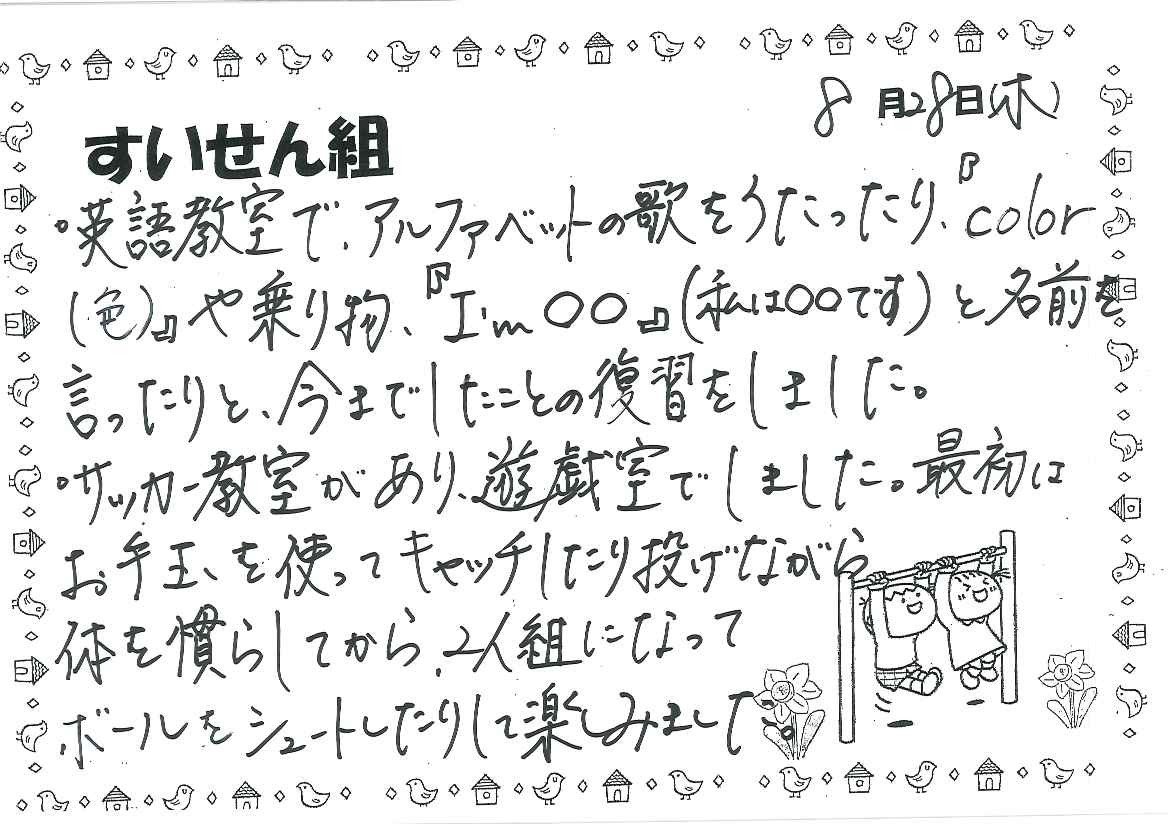 8月28日(木)
すいせん組
・英語教室で、アルファベットの歌をうたったり、『color
(色)』や乗り物、『I'm 〇〇』(私は〇〇です)と名前を
言ったりと、今までしたことの復習をしました。
・サッカー教室があり、遊戯室でしました。最初は
お手玉を使ってキャッチしたり投げながら
体を慣らしてから、2人組になって
ボールをシュートしたりして楽しみました。